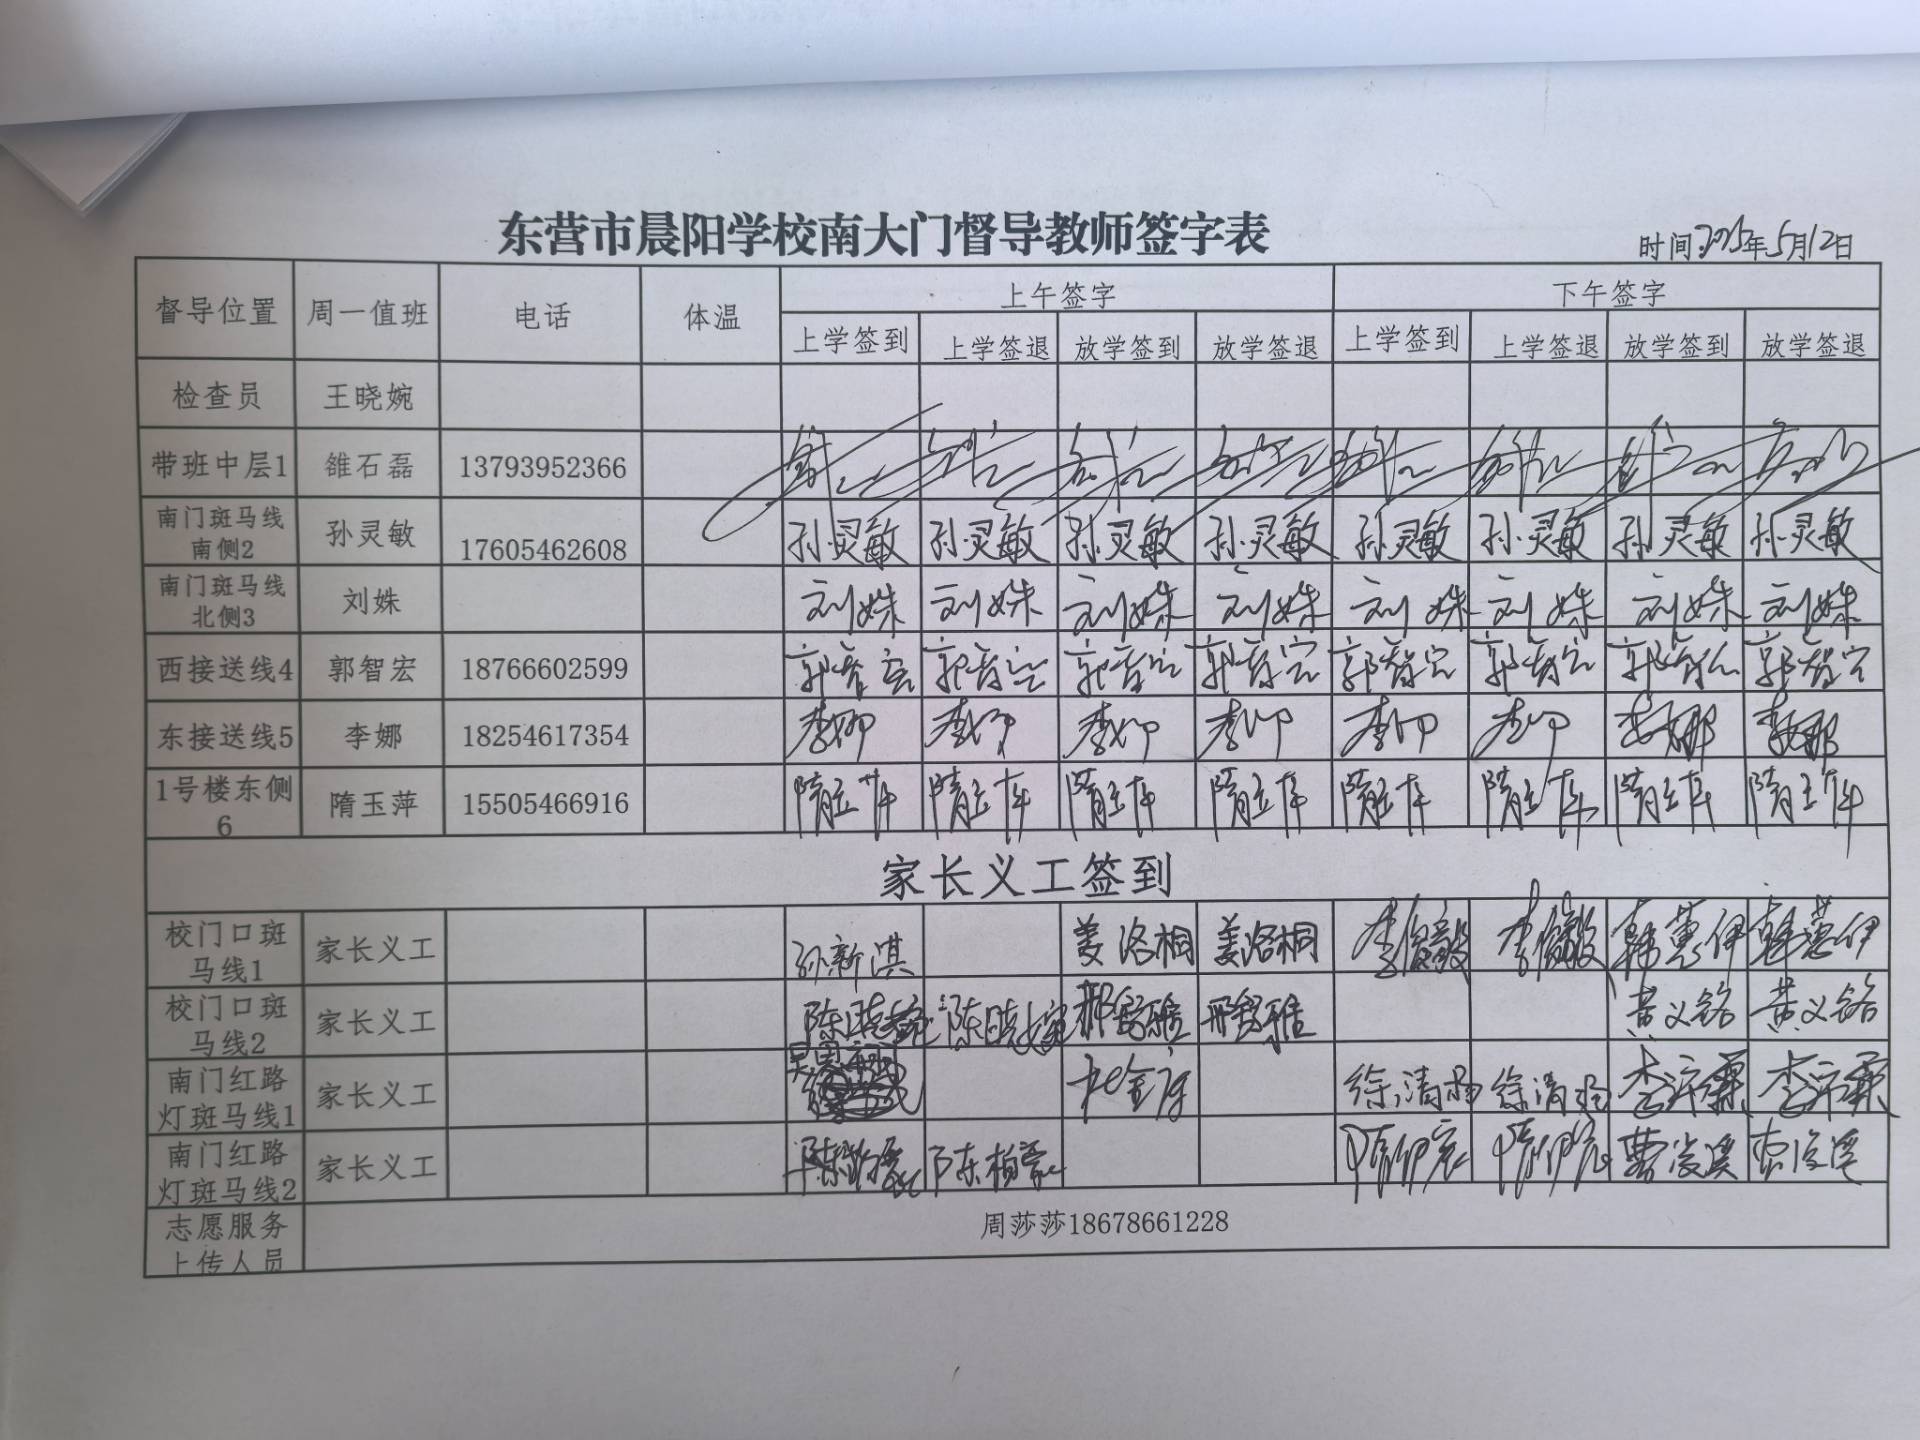 东营市晨阳学校南大门督导教师签字表
时间:2025年5月12日
督导位置 周一值班 电话 体温 上午签字 下午签字
上学签到 上学签退 放学签到 放学签退 上学签到 上学签退 放学签到 放学签退
检查员 王晓婉
带班中层1 雒石磊 13793952366
南门斑马线
南侧2 孙灵敏 17605462608 孙灵敏 孙灵敏 孙灵敏 孙灵敏 孙灵敏 孙灵敏 孙灵敏 孙灵敏
南门斑马线
北侧3 刘姝 刘姝 刘姝 刘姝 刘姝 刘姝 刘姝 刘姝 刘姝
西接送线4 郭智宏 18766602599 郭智宏 郭智宏 郭智宏 郭智宏 郭智宏 郭智宏 郭智宏 郭智宏
东接送线5 李娜 18254617354 李娜 李娜 李娜 李娜 李娜 李娜 李娜 李娜
1号楼东侧
6 隋玉萍 15505466916 隋玉萍 隋玉萍 隋玉萍 隋玉萍 隋玉萍 隋玉萍 隋玉萍 隋玉萍
家长义工签到
校门口斑
马线1 家长义工 孙新淇 姜洛桐 姜洛桐 李俊毅 李俊毅 韩蕙伊 韩蕙伊
校门口斑
马线2 家长义工 黄义铭 黄义铭
南门红路
灯斑马线1 家长义工
南门红路
灯斑马线2 家长义工 陈柏豪
志愿服务
上传人员 周莎莎18678661228